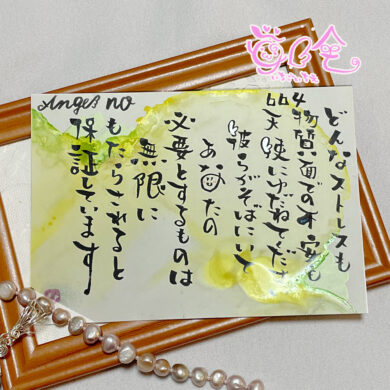 Angel no
どんなストレスも
物質面での不安も
天使にゆだねてくださ
彼らがそばにいて
あなたの
必要とするものは
無限に
もたらされると
保証しています